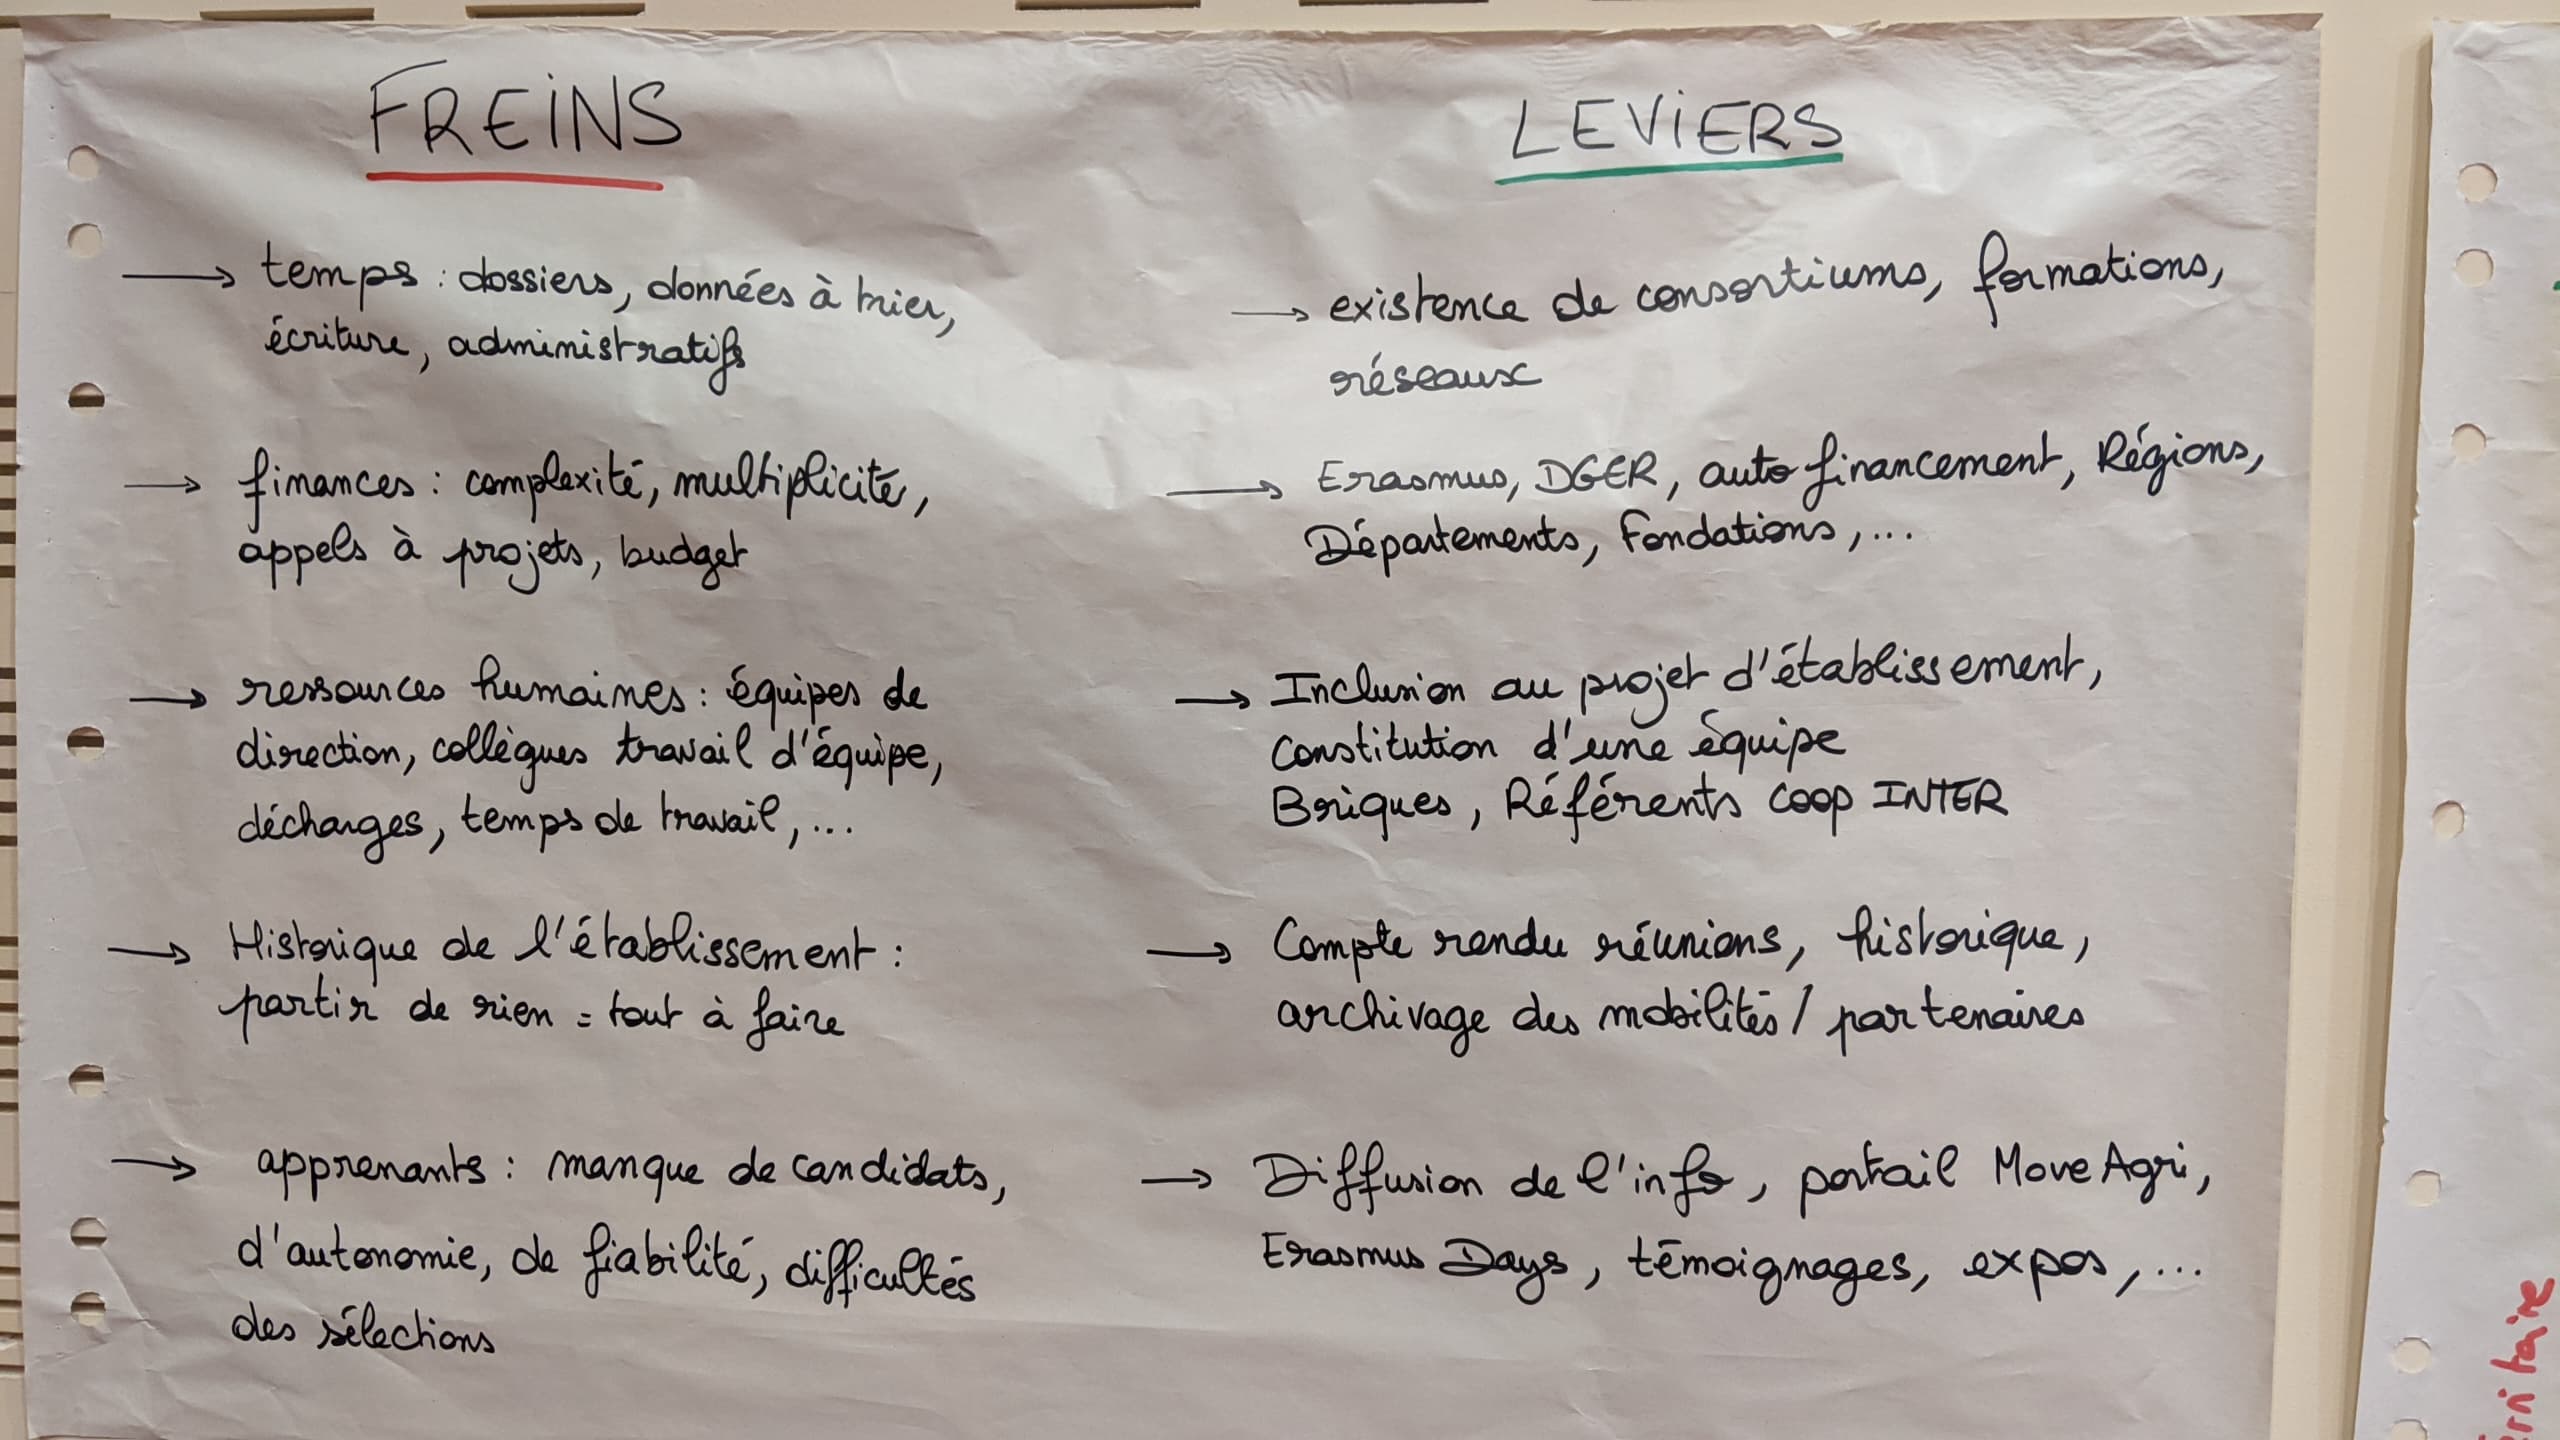 FREINS
→ temps : dossiers, données à trier,
écriture, administratifs
→ finances : complexité, multiplicité,
appels à projets, budget
→ ressources humaines : équipes de
direction, collègues travail d'équipe,
décharges, temps de travail, ...
→ Historique de l'établissement :
partir de rien = tout à faire
→ apprenants : manque de candidats,
d'autonomie, de fiabilité, difficultés
des sélections
LEVIERS
→ existence de consortiums, formations,
réseaux
→ Erasmus, DGER, auto financement, Régions,
Départements, Fondations, ...
→ Inclusion au projet d'établissement,
Constitution d'une équipe
Briques, Référents COOP INTER
→ Compte rendu réunions, historique,
archivage des mobilités / partenaires
→ Diffusion de l'info, portail MoveAgri,
Erasmus Days, témoignages, expos, ...